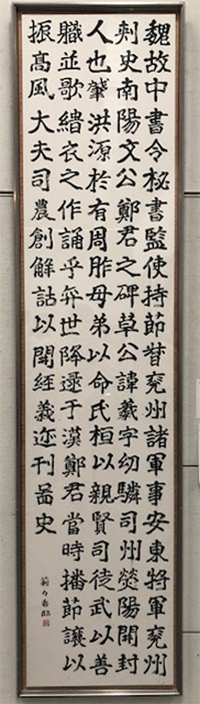 魏故中書令秘書監使持節督兗州諸軍事安東將軍兗州
刺史南陽文公鄭君之碑草公諱羲字幼驎司州熒陽開封
人也肇洪源於有周胙母弟以命氏桓以親賢司徒武以善
軄並歌緇衣之作誦乎弈世降逮于漢鄭君當時播節讓以
振髙風大夫司農創解詁以開經義迹刊啚史
臨